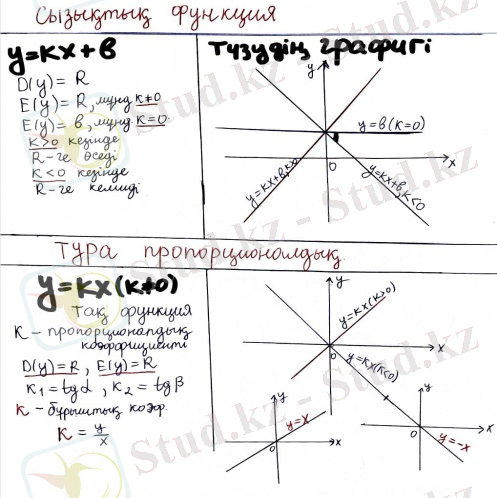 Сызықтық функция
y=kx+b
D(y)= R
E(y)= R, мұнд k≠0
E(y)= b, мұнд k=0
k>0 кезінде
R-ге өседі
k<0 кезінде
R-ге кемиді
Түзудің графигі
y
y=b(k=0)
x
0
y=kx+b, k>0
y=kx+b, k<0
Тура пропорционалдық
y=kx(k≠0)
Тақ функция
k - пропорционалдық
коэффициенті
D(y)=R, E(y)=R
k₁=tgα, k₂=tgβ
k - бұрыштық коэф.
k = y/x
y
y=kx(k>0)
0
x
y=kx(k<0)
y
y=x
0
x
y
0
x
y=-x
Stud.kz - Stud.kz
Stud.kz - Stud.kz
Stud.kz - Stud.kz